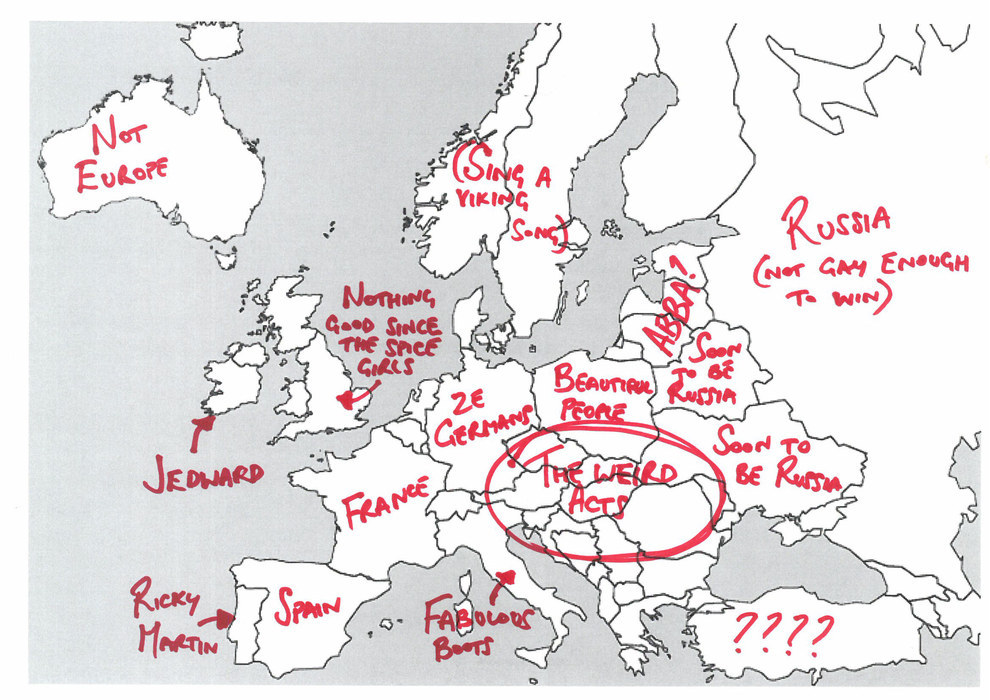 NOT
EUROPE
(SING A
VIKING
SONG)
RUSSIA
(NOT GAY ENOUGH
TO WIN)
NOTHING
GOOD SINCE
THE SPICE
GIRLS
ABBA?
SOON
TO BE
RUSSIA
BEAUTIFUL
PEOPLE
ZE
GERMANS
SOON TO
BE RUSSIA
JEDWARD
THE WEIRD
ACTS
FRANCE
RICKY
MARTIN
SPAIN
FABULOUS
BOOTS
????